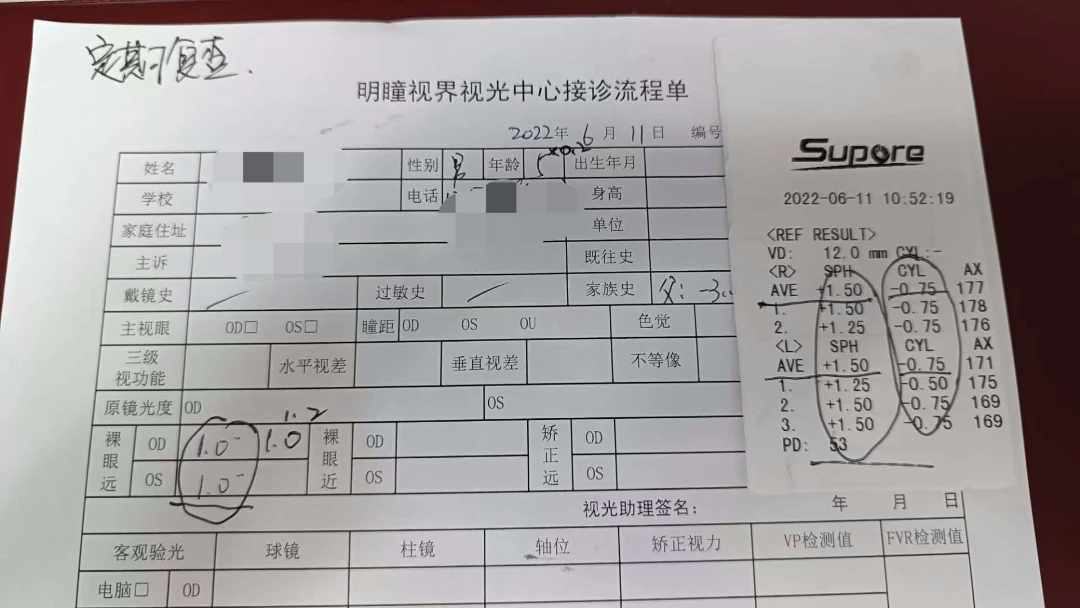 定期复查.
明瞳视界视光中心接诊流程单
2022年 6 月 11 日 编号
姓名 性别 男 年龄 5 出生年月
学校 电话 身高
家庭住址 单位
主诉 既往史
戴镜史 / 过敏史 / 家族史 父: -3.
主视眼 OD□ OS□ 瞳距 OD OS OU 色觉
三级视功能 水平视差 垂直视差 不等像
原镜光度 OD OS
1.2
裸眼远 OD 1.0⁻ 1.0 裸眼近 OD 矫正远 OD
OS 1.0⁻ OS OS
视光助理签名: 年 月 日
客观验光 球镜 柱镜 轴位 矫正视力 VP检测值 FVR检测值
电脑□ OD
Supore
2022-06-11 10:52:19
<REF RESULT>
VD: 12.0 mm CYL:-
<R> SPH CYL AX
AVE +1.50 -0.75 177
1. +1.50 -0.75 178
2. +1.25 -0.75 176
<L> SPH CYL AX
AVE +1.50 -0.75 171
1. +1.25 -0.50 175
2. +1.50 -0.75 169
3. +1.50 -0.75 169
PD: 53